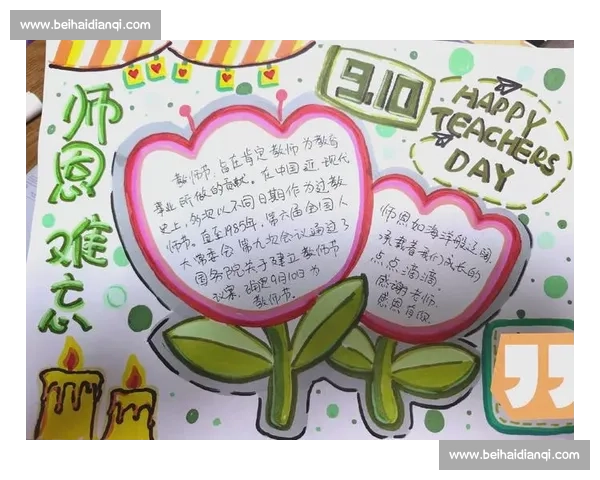 www.beihaidianqi.com
师恩难忘
9.10
HAPPY
TEACHERS
DAY
教师节,旨在肯定教师为教育
事业所做的贡献。在中国近现代
史上,多次以不同日期作为过教
师节。直至1985年,第六届全国人
大常委会第九次会议通过了
国务院关于建立教师节
议案,确定9月10日为
教师节。
师恩如海洋般辽阔,
承载着我们成长的
点点滴滴。
感谢老师,
感恩有您。
www.beihaidianqi.com